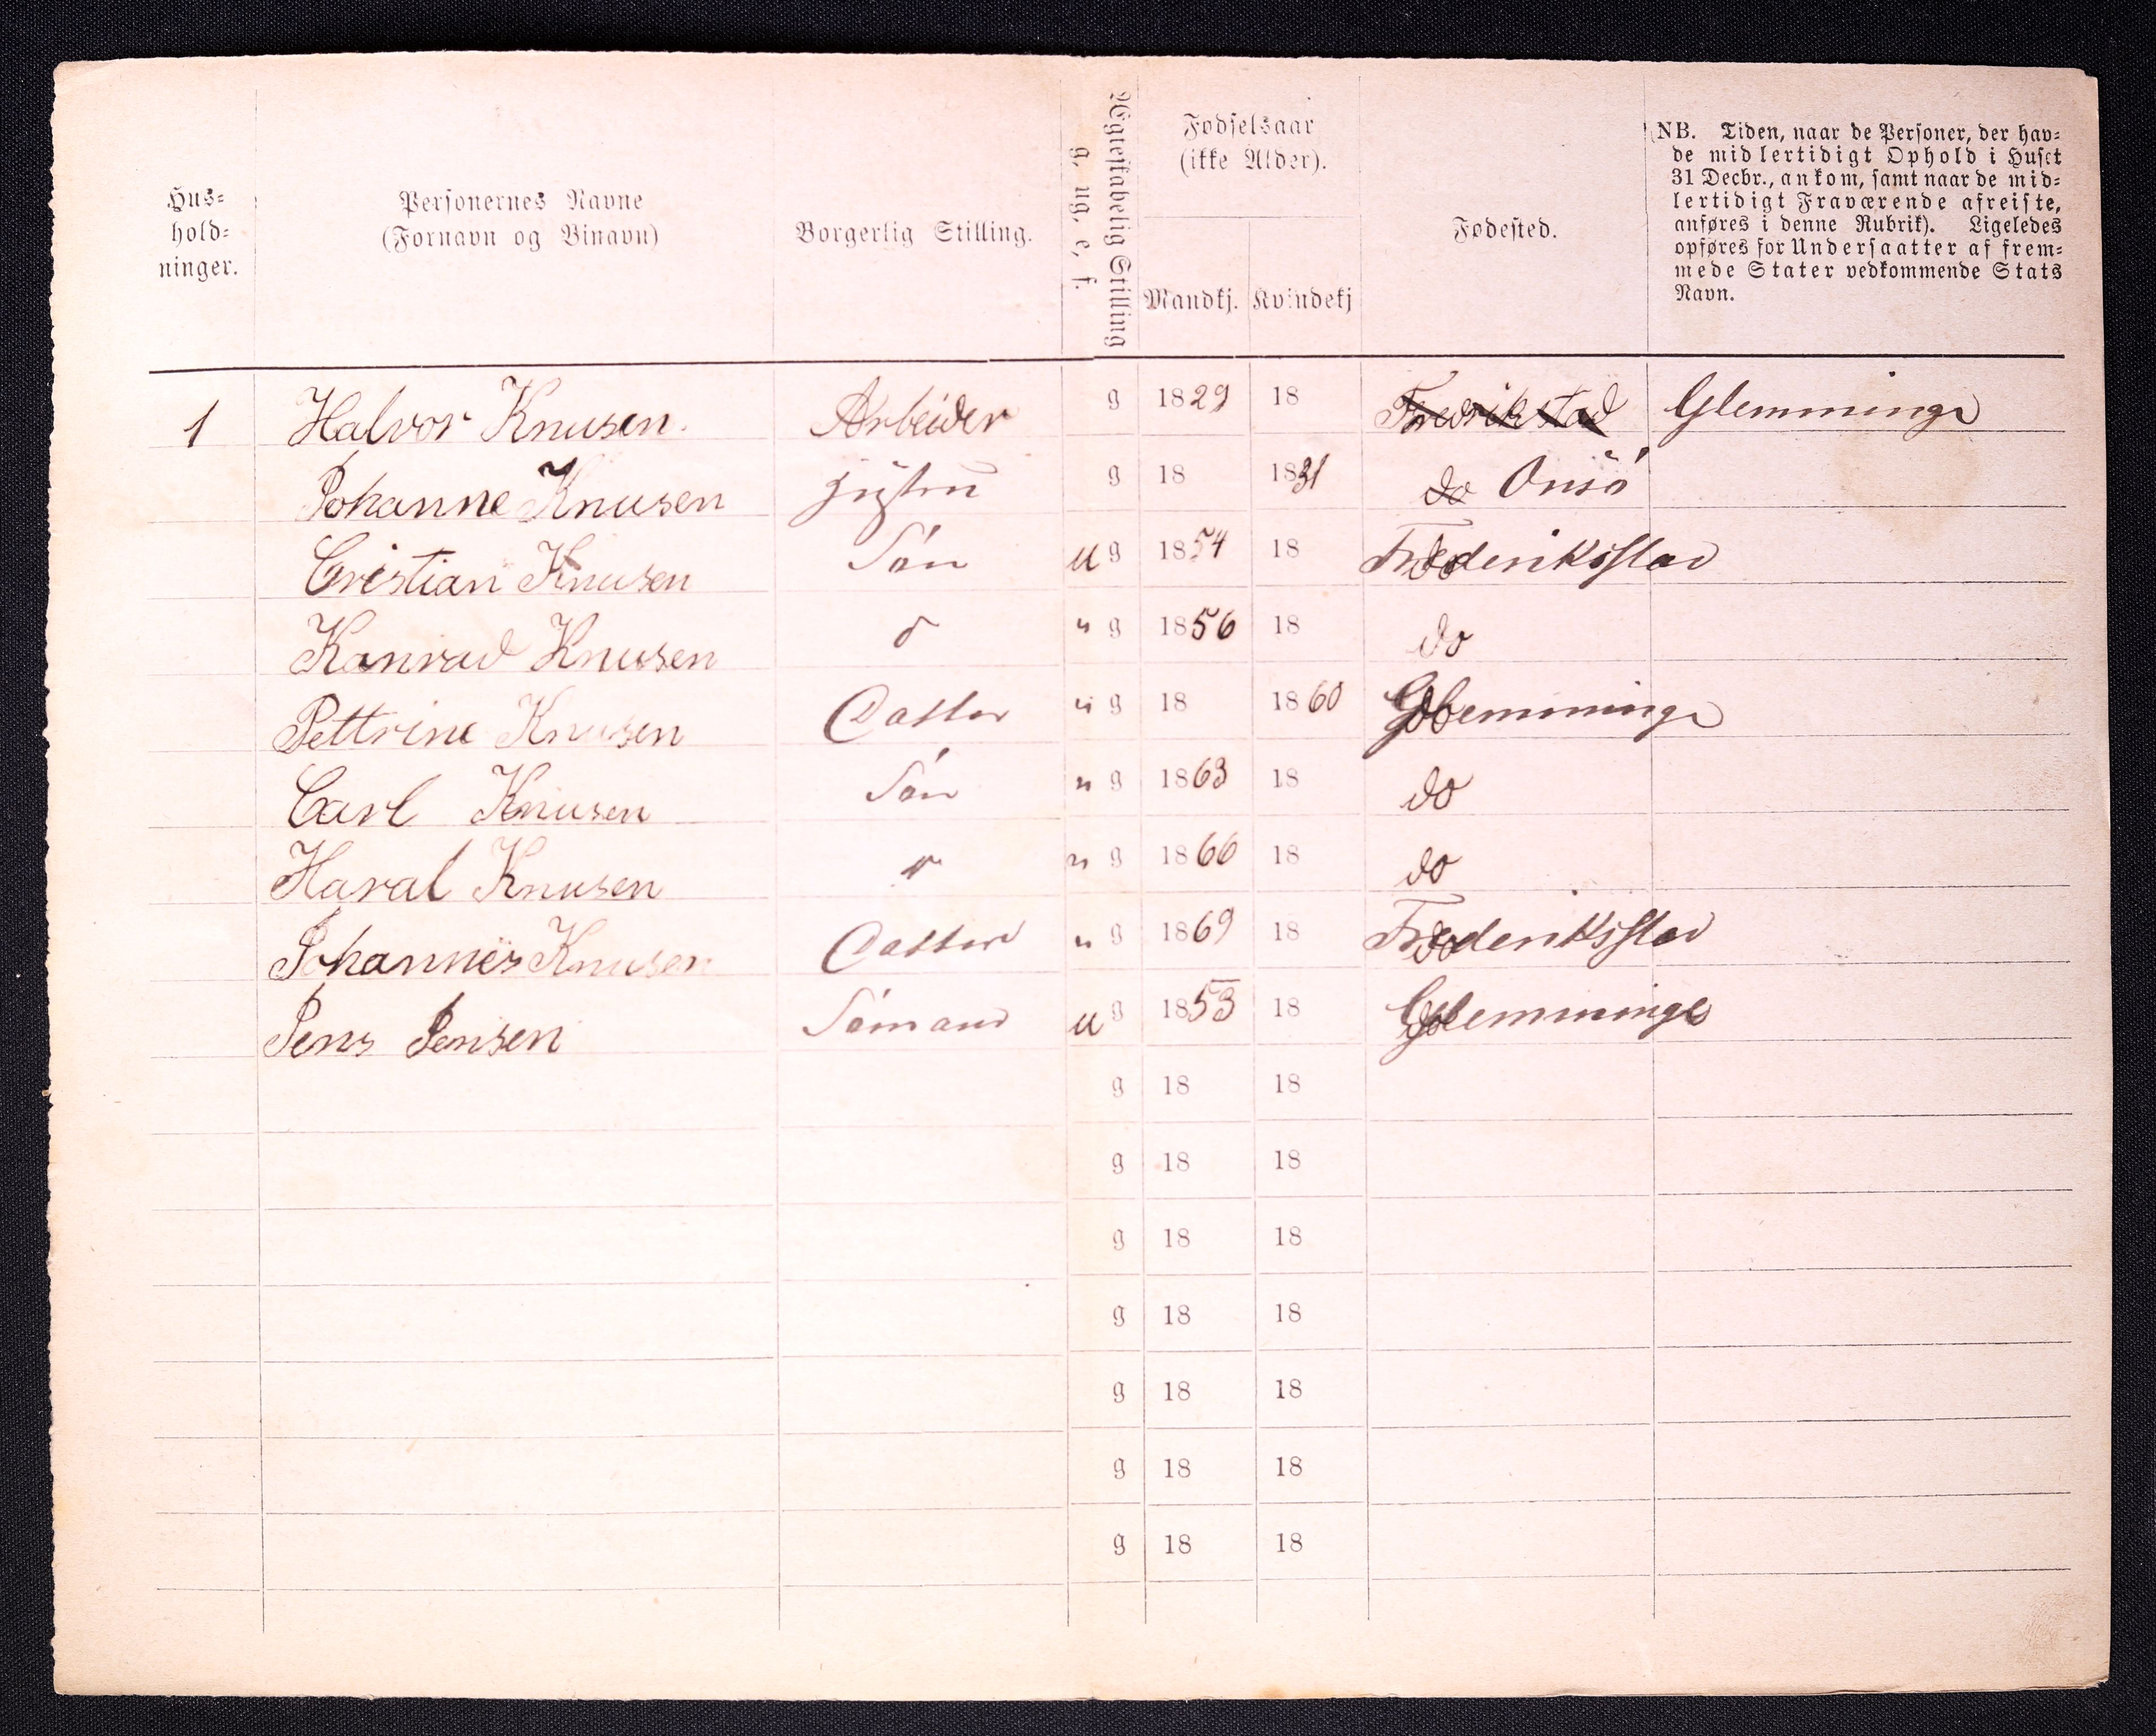 Hus=
hold=
ninger.
Personernes Navne
(Fornavn og Binavn)
Borgerlig Stilling.
Ægteskabelig Stilling
g, ug, e, f.
Fødselsaar
(ikke Alder).
Mandkj. Kvindekj
Fødested.
(NB. Tiden, naar de Personer, der hav=
de midlertidigt Ophold i Huset
31 Decbr., ankom, samt naar de mid=
lertidigt Fraværende afreiste,
anføres i denne Rubrik). Ligeledes
opføres for Undersaatter af frem=
mede Stater vedkommende Stats
Navn.
1 Halvor Knusen. Arbeider g 1829 18 Fredrikstad Glemminge
Johanne Knusen g 18 1831 do Onsø
Cristian Knusen Søn u g 1854 18 do Frederiksstad
Kanrad Knusen d " g 1856 18 do
Pettrine Knusen Datter " g 18 1860 do Glemminge
Carl Knusen Søn " g 1863 18 do
Haral Knusen " g 1866 18 do
Johannes Knusen Datter " g 1869 18 do Frederiksstad
Jens Jensen Sømand u g 1853 18 do Glemminge
g 18 18
g 18 18
g 18 18
g 18 18
g 18 18
g 18 18
g 18 18